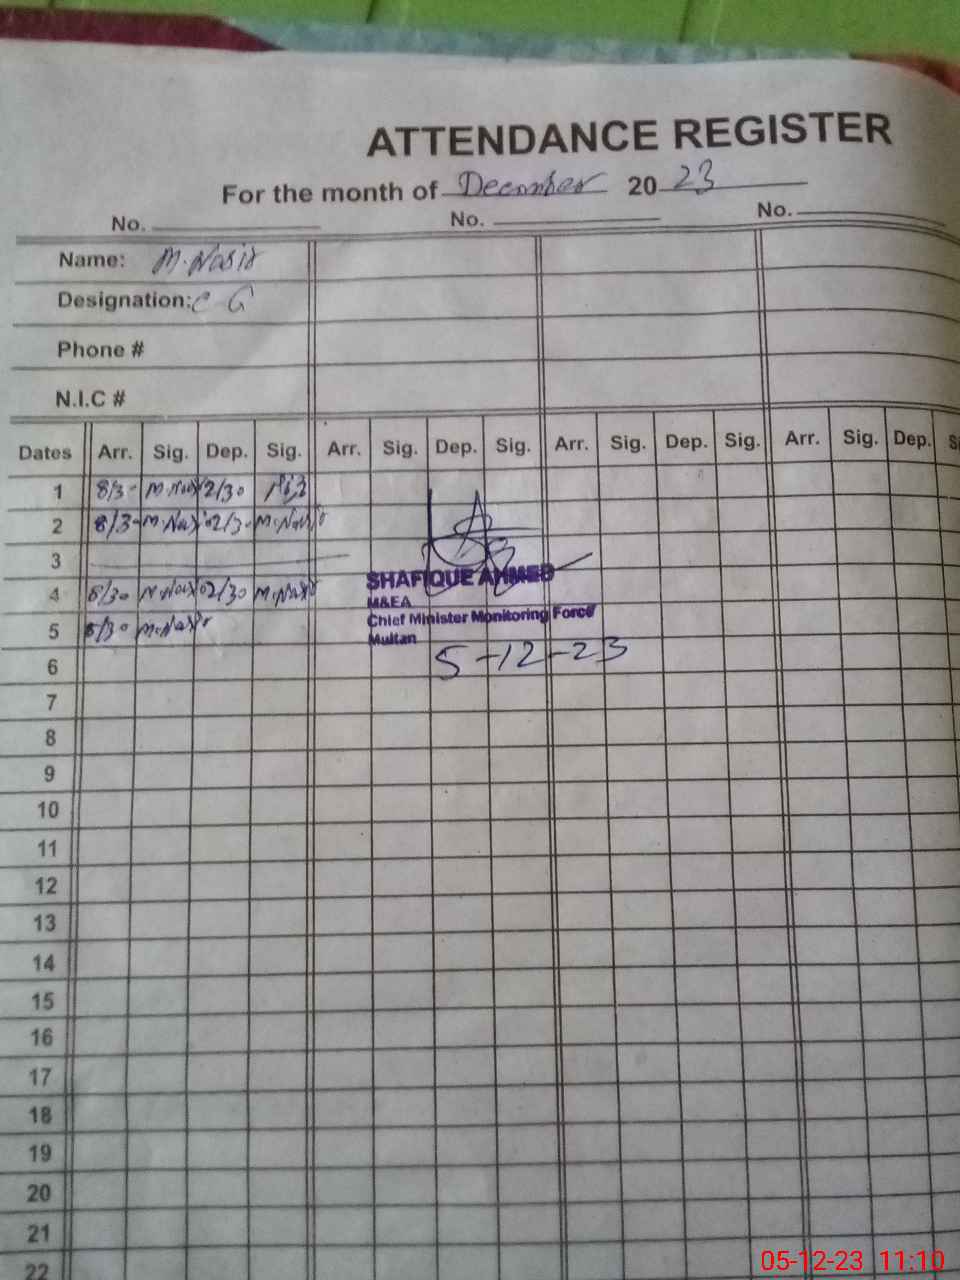 ATTENDANCE REGISTER
For the month of December 20 23
No. No. No.
Name: M. Nasir
Designation: C G
Phone #
N.I.C #
Dates Arr. Sig. Dep. Sig. Arr. Sig. Dep. Sig. Arr. Sig. Dep. Sig. Arr. Sig. Dep.
1 8/30 M. Nasir 02/30
2 8/30 M. Nasir 02/30 M. Nasir
3
4 8/30 M. Nasir 02/30 M. Nasir
5 8/30 M. Nasir
SHAFIQUE AHMED
M&EA
Chief Minister Monitoring Force
Multan
5-12-23
6
7
8
9
10
11
12
13
14
15
16
17
18
19
20
21
22
05-12-23 11:10